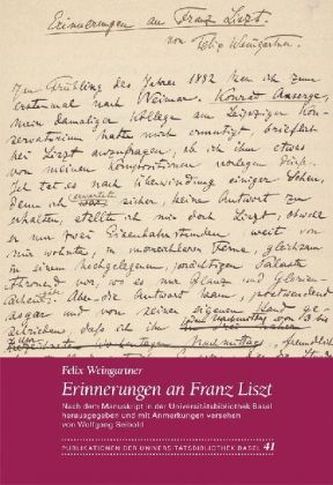 Erinnerungen an Franz Liszt.
von Felix Weingartner.
Im Frühling des Jahres 1882 kam ich zum
erstenmal nach Weimar. Konrad Ansorge,
mein damaliger Kollege am Leipziger Kon-
servatorium hatte mich ermutigt, brieflich
bei Liszt anzufragen, ob ich ihm etwas
von meinen Kompositionen vorlegen dürfe.
Ich tat es nach Überwindung einiger Scheu,
denn ich erwartete sicher, keine Antwort zu
erhalten, stellte ich mir doch Liszt, obwohl
er nur zwei Eisenbahnstunden weit von
mir wohnte, in unnahbarer Ferne, gleichsam
in einem hochgelegenen, prächtigen Palaste
thronend vor, wo es nur Glanz und Glorien-
Aber die Antwort kam, postwendend
sogar und von seiner eigenen Hand ge-
schrieben, dass ich ihn
Nachmittags, freundlich
Felix Weingartner
Erinnerungen an Franz Liszt
Nach dem Manuskript in der Universitätsbibliothek Basel
herausgegeben und mit Anmerkungen versehen
von Wolfgang Seibold
PUBLIKATIONEN DER UNIVERSITÄTSBIBLIOTHEK BASEL 41